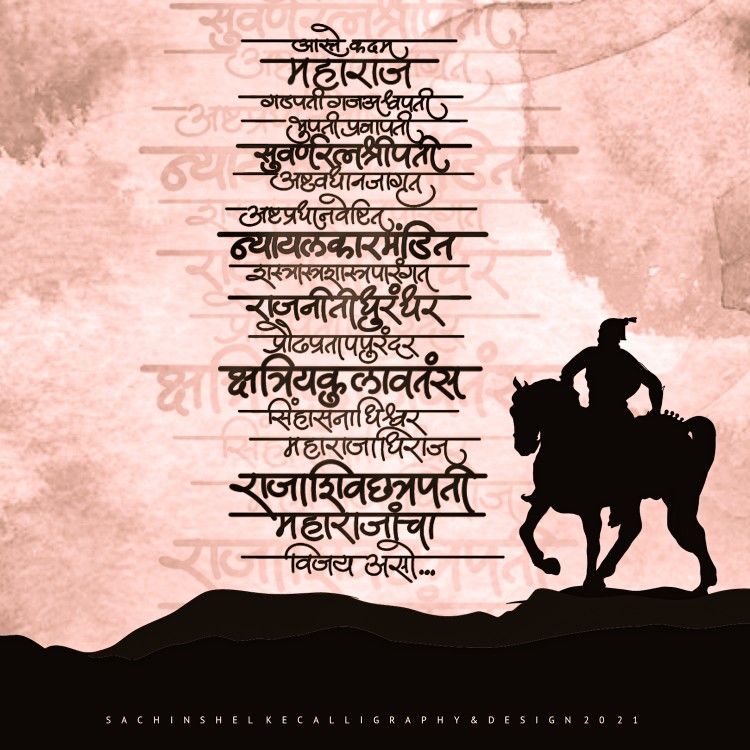 आस्ते कदम
महाराज
गडपती गजअश्वपती
भुपती प्रजापती
सुवर्णरत्नश्रीपती
अष्टवधानजागृत
अष्टप्रधानवेष्टित
न्यायलंकारमंडित
शस्त्रास्त्रशास्त्रपारंगत
राजनीतीधुरंधर
प्रौढप्रतापपुरंदर
क्षत्रियकुलावतंस
सिंहासनाधिश्वर
महाराजाधिराज
राजाशिवछत्रपती
महाराजांचा
विजय असो...
SACHINSHELKECALLIGRAPHY&DESIGN2021